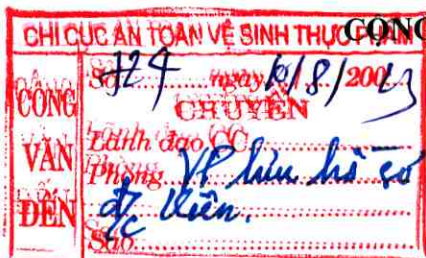 CHI CỤC AN TOÀN VỆ SINH THỰC PHẨM
CỘNG
CÔNG VĂN ĐẾN
Số 124 ngày 10/8/2003
CHUYỂN
Lãnh đạo CC
Phòng VP lưu hồ sơ
đ/c
Sao